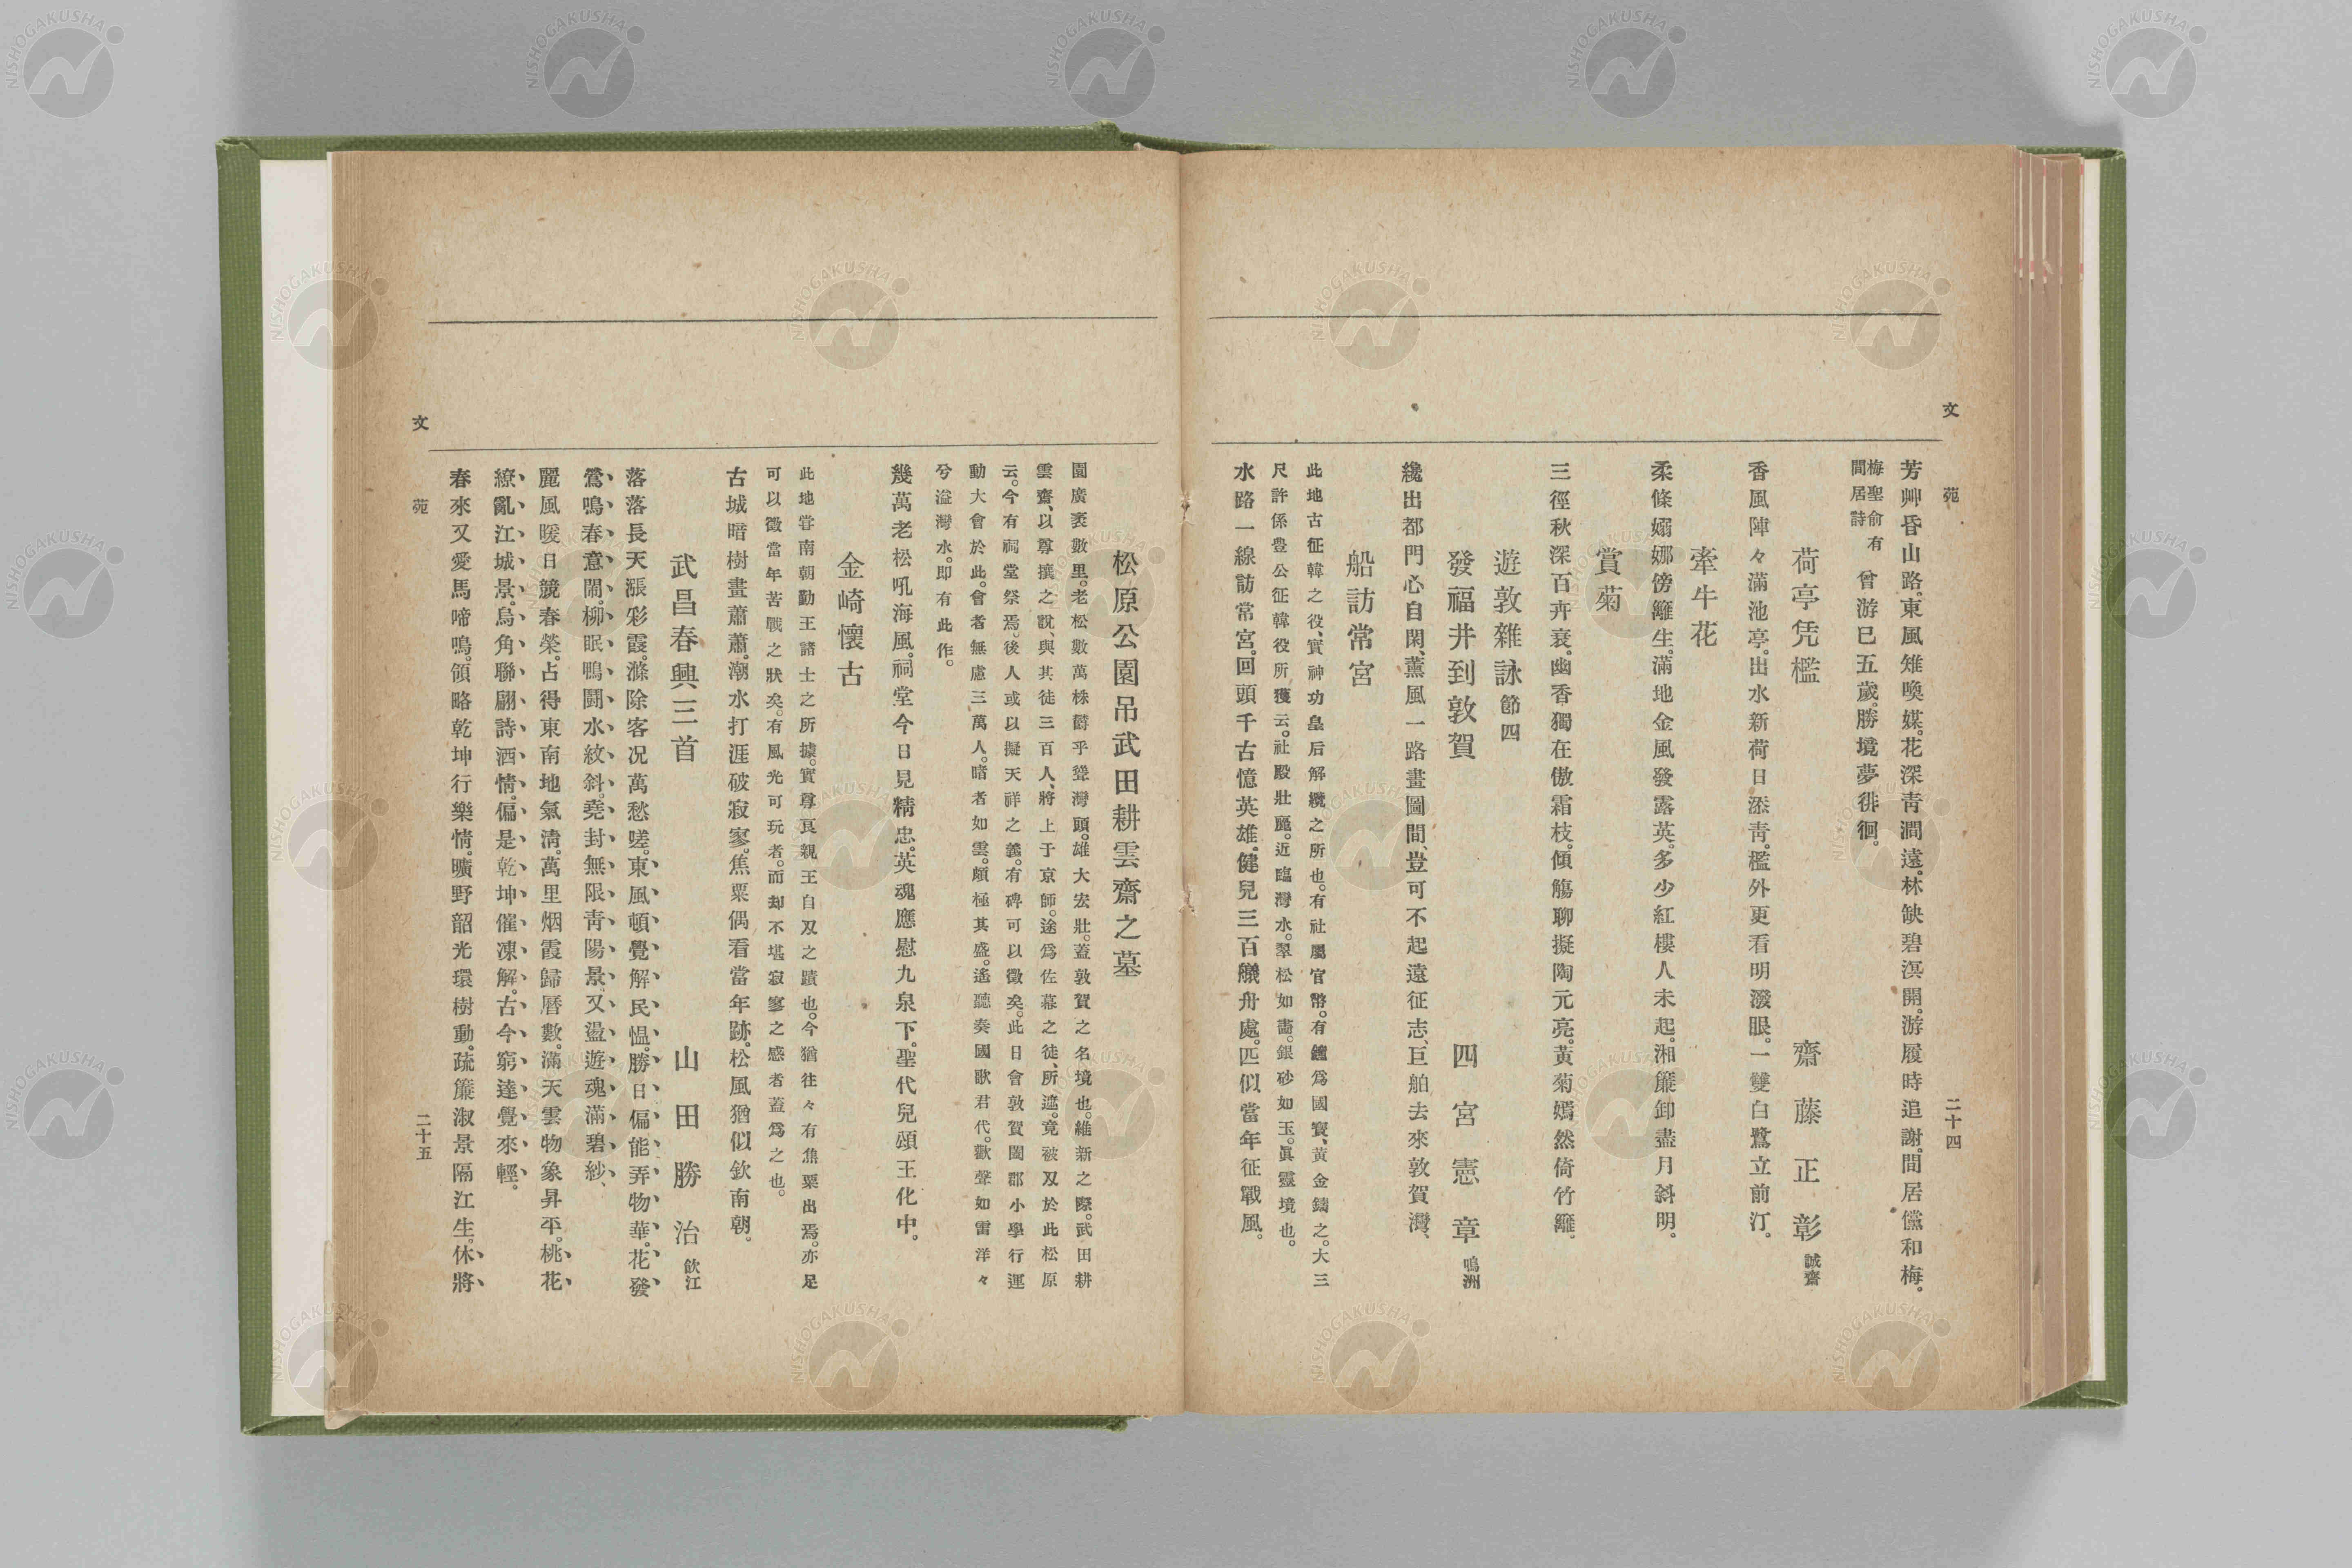 文苑
二十四
芳艸昏山路。東風雉喚媒。花深靑澗遠。林缺碧溟開。游履時追謝。間居儻和梅。
梅聖兪有
間居詩
曾游巳五歲。勝境夢徘徊。
荷亭凭檻
齋藤正彰 誠齋
香風陣々滿池亭。出水新荷日添靑。檻外更看明潑眼。一雙白鷺立前汀。
牽牛花
柔條嫋娜傍籬生。滿地金風發露英。多少紅樓人未起。湘簾卸盡月斜明。
賞菊
三徑秋深百卉衰。幽香獨在傲霜枝。傾觴聊擬陶元亮。黃菊嫣然倚竹籬。
遊敦雜詠節四
發福井到敦賀
四宮憲章 鳴洲
纔出都門心自閑、薰風一路畫圖間、豈可不起遠征志、巨舶去來敦賀灣、
船訪常宮
此地古征韓之役、實神功皇后解纜之所也。有社屬官幣。有鐘爲國寶、黃金鑄之。大三
尺許係豊公征韓役所獲云。社殿壯麗。近臨灣水。翠松如畵。銀砂如玉。眞靈境也。
水路一線訪常宮。回頭千古憶英雄。健兒三百艤舟處。匹似當年征戰風。
松原公園吊武田耕雲齋之墓
園廣袤數里。老松數萬株欝乎聳灣頭。雄大宏壯。蓋敦賀之名境也。維新之際。武田耕
雲齋、以尊攘之說、與其徒三百人、將上于京師。途爲佐幕之徒、所遮。竟被刄於此松原
云。今有祠堂祭焉。後人或以擬天祥之義。有碑可以徵矣。此日會敦賀闔郡小學行運
動大會於此。會者無慮三萬人。睹者如雲。頗極其盛。遙聽奏國歌君代。歡聲如雷洋々
兮溢灣水。即有此作。
幾萬老松吼海風。祠堂今日見精忠。英魂應慰九泉下。聖代兒頌王化中。
金崎懷古
此地甞南朝勤王諸士之所據。實尊良親王自刄之蹟也。今猶往々有焦粟出焉。亦足
可以徵當年苦戰之狀矣。有風光可玩者。而却不堪寂寥之感者蓋爲之也。
古城暗樹畫蕭蕭。潮水打涯破寂寥。焦粟偶看當年跡。松風猶似欽南朝。
武昌春興三首
山田勝治 飲江
落落長天漲彩霞。滌除客况萬愁嗟。東風頓覺解民慍。勝日偏能弄物華。花發
鶯鳴春意鬧。柳眠鴨鬪水紋斜。堯封無限靑陽景。又盪遊魂滿碧紗、
麗風暖日競春榮。占得東南地氣淸。萬里烟霞歸曆數。滿天雲物象昇平。桃花
繚亂江城景。烏角聯翩詩酒情。偏是乾坤催凍解。古今窮達覺來輕。
春來又愛馬啼鳴。領略乾坤行樂情。曠野韶光環樹動。疏簾淑景隔江生。休將
文苑
二十五